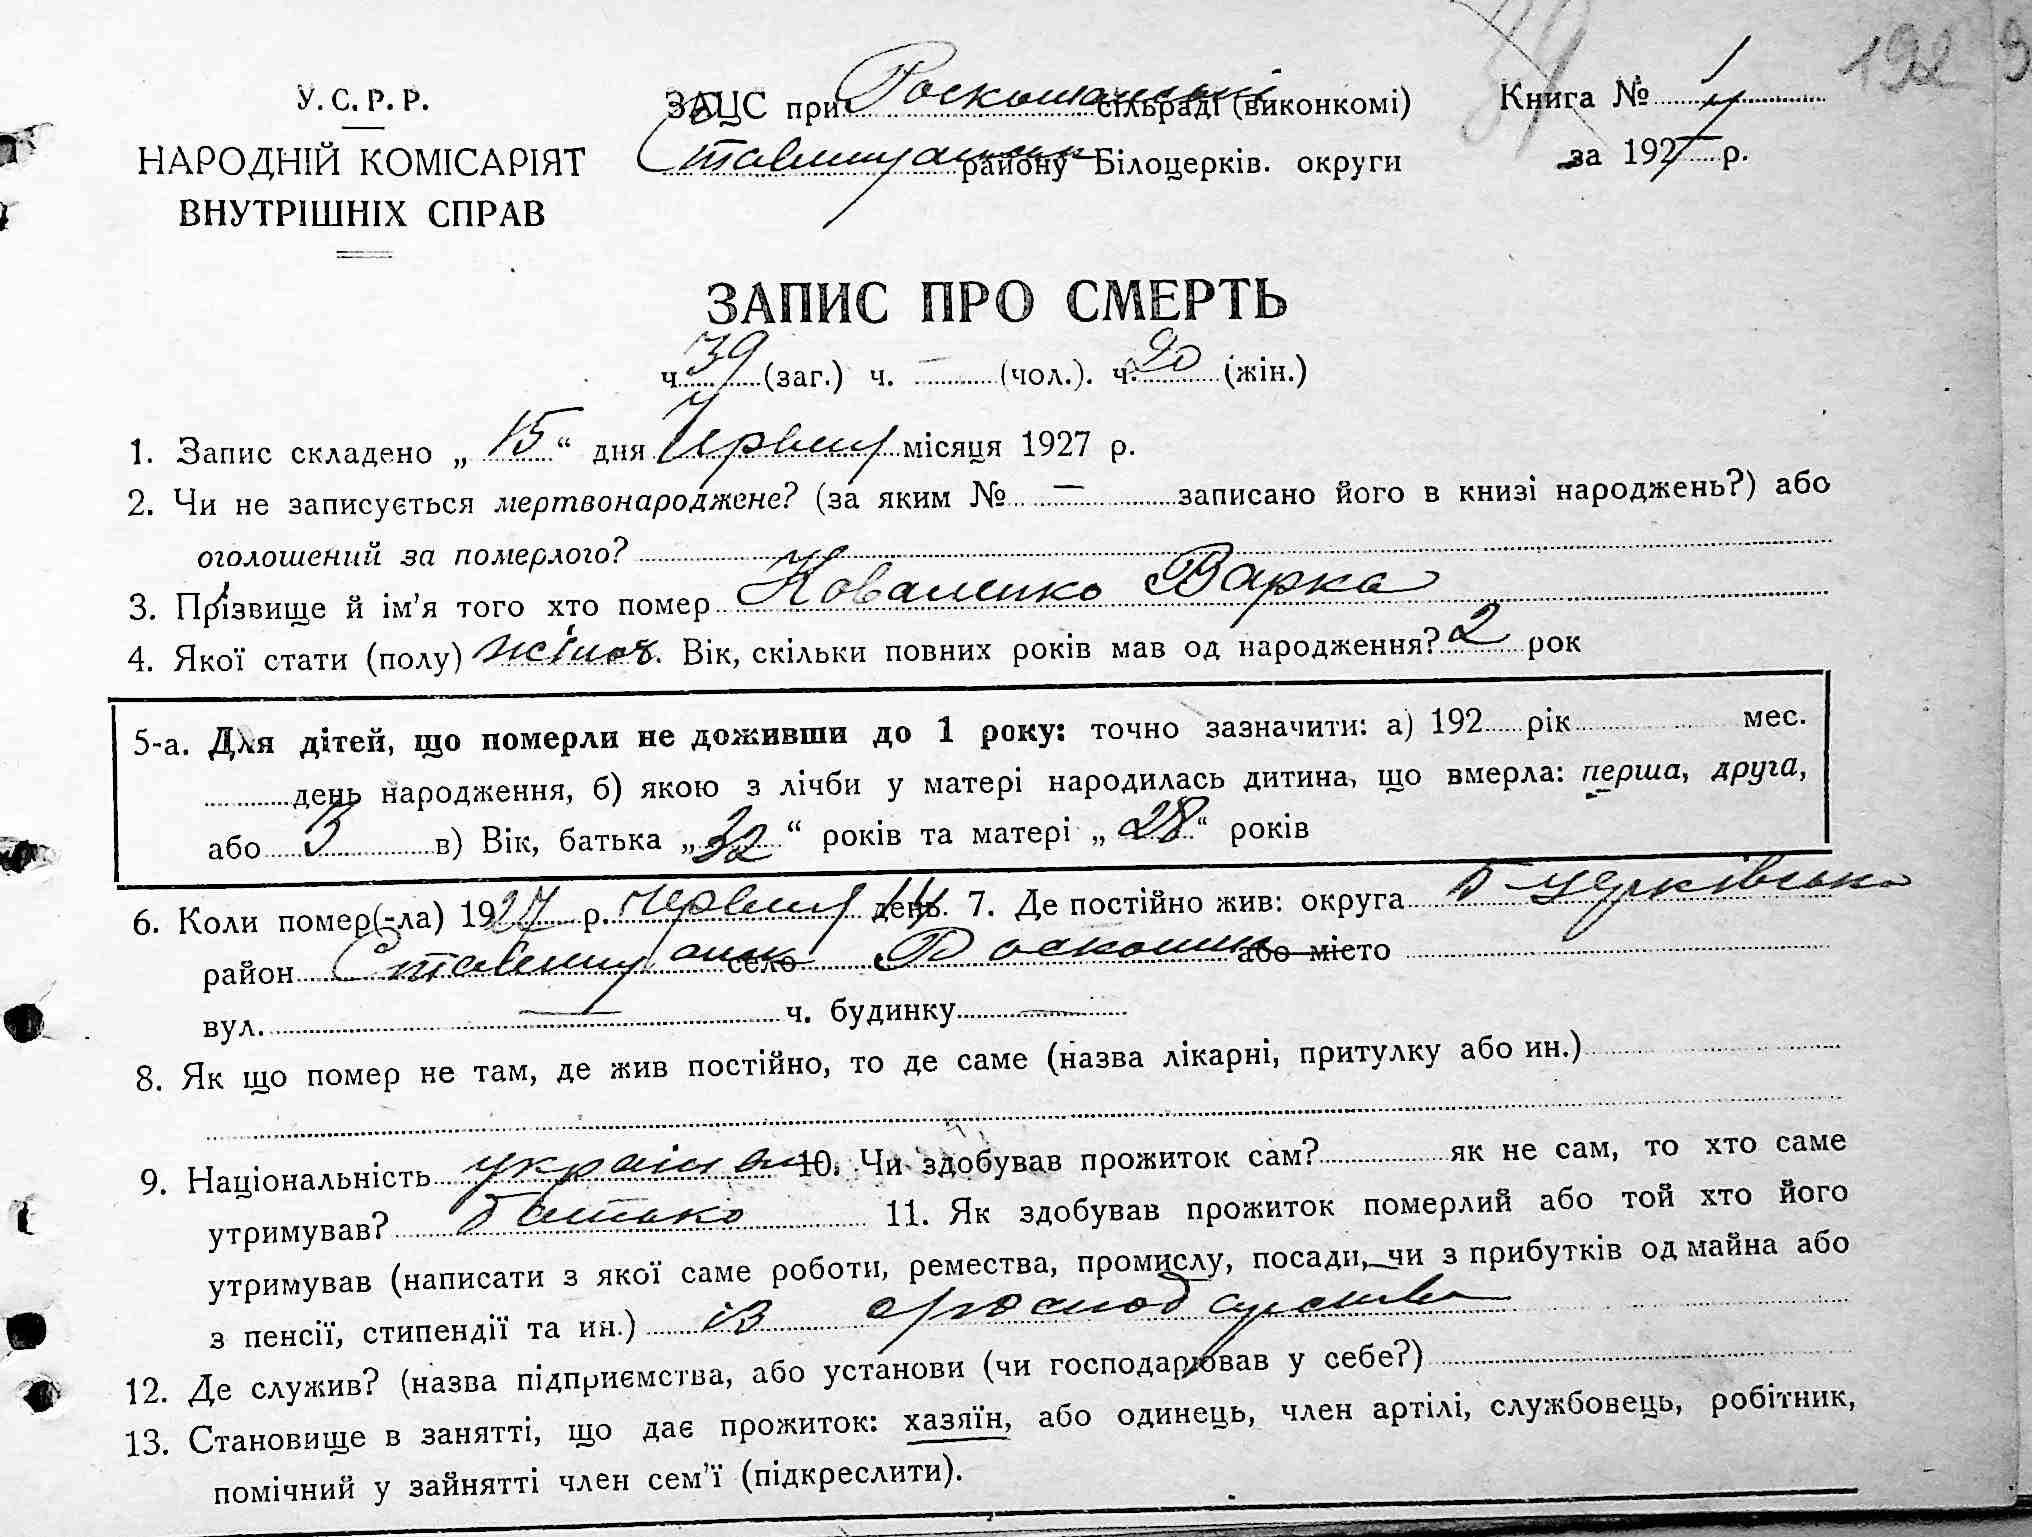 39 192 9
У. С. Р. Р.
НАРОДНІЙ КОМІСАРІЯТ
ВНУТРІШНІХ СПРАВ
ЗАЦС при Роскошанські сільраді (виконкомі)
Ставищанськ району Білоцерків. округи
Книга № 1
за 1927 р.
ЗАПИС ПРО СМЕРТЬ
ч. 39 (заг.) ч. — (чол.). ч. 20 (жін.)
1. Запис складено „ 15 “ дня Червня місяця 1927 р.
2. Чи не записується мертвонароджене? (за яким № — записано його в книзі народжень?) або
оголошений за померлого?
3. Прізвище й ім’я того хто помер Коваленко Варка
4. Якої стати (полу) жіноч. Вік, скільки повних років мав од народження? 2 рок
5-а. Для дітей, що померли не доживши до 1 року: точно зазначити: а) 192 рік мес.
день народження, б) якою з лічби у матері народилась дитина, що вмерла: перша, друга,
або 3 в) Вік, батька „ 32 “ років та матері „ 28 “ років
6. Коли помер(-ла) 1927 р. червня 14 день. 7. Де постійно жив: округа Б-церківська
район Ставищанськ село Роскошна або місто
вул. — ч. будинку —
8. Як що помер не там, де жив постійно, то де саме (назва лікарні, притулку або ин.)
9. Національність україн 10. Чи здобував прожиток сам? як не сам, то хто саме
утримував? Батько 11. Як здобував прожиток померлий або той хто його
утримував (написати з якої саме роботи, ремества, промислу, посади, чи з прибутків од майна або
з пенсії, стипендії та ин.) із господарства
12. Де служив? (назва підприємства, або установи (чи господарював у себе?)
13. Становище в занятті, що дає прожиток: хазяїн, або одинець, член артілі, службовець, робітник,
помічний у зайнятті член сем’ї (підкреслити).